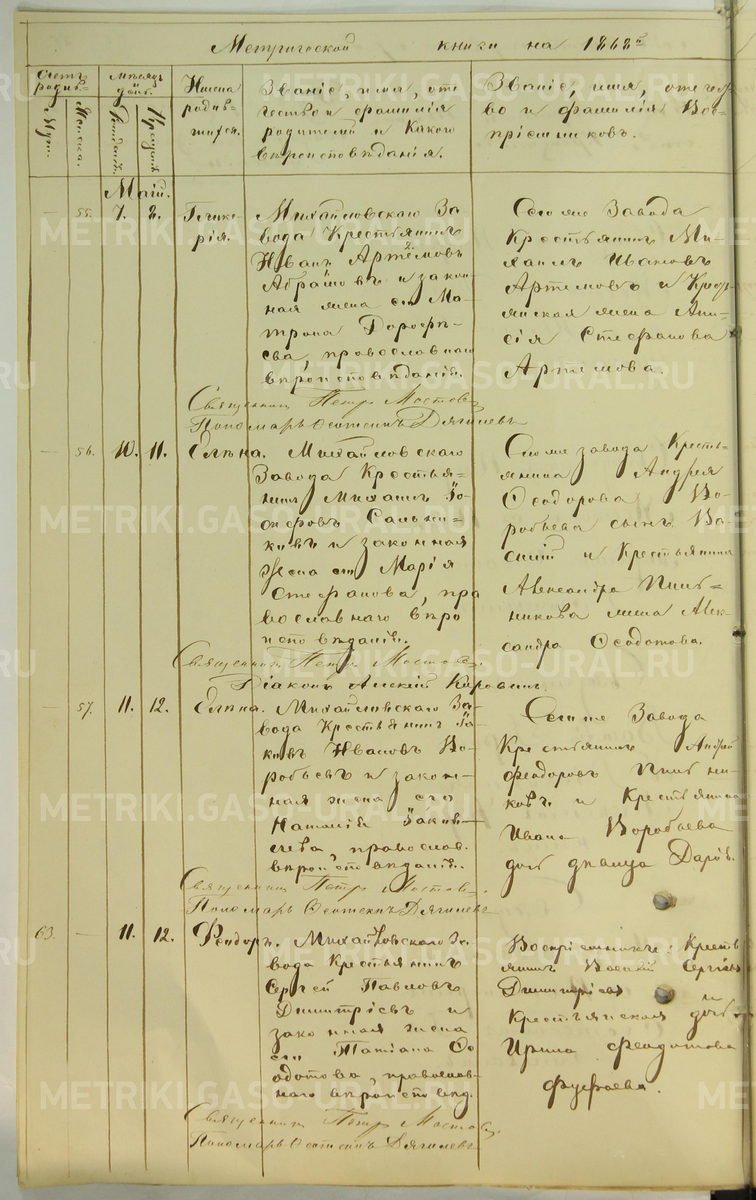 Метрической книги на 1868й
Счетъ родив=
Муж.
Женска.
Мѣсяцъ и день.
Рожденія.
Крещенія
Имена
родив-
шихся.
Званіе, имя, оте
чество и фамилія
родителей и какого
вѣроисповѣданія.
Званіе, имя, отечест
во и фамилія Вос-
пріемниковъ.
Май.
— 55. 7. 8. Глике-
рія.
Михайловскаго За
вода Крестьянинъ
Иванъ Артемовъ
и закон-
ная жена его Ма-
трона Дорофѣ-
ева, православнаго
вѣроисповѣданія.
Тогоже Завода
Крестьянинъ Ми-
хаилъ Ивановъ
Артемовъ и Крестъ-
янская жена Ани-
сія Стефанова
Артемова.
Священникъ Петръ Мостовъ
Пономарь Феоктистъ Дягилевъ
— 56. 10. 11. Елѣна.
Михайловскаго
Завода Крестья-
нинъ Михаилъ Іо-
сифовъ Сальни-
ковъ и законная
жена его Марія
Стефанова, пра
вославнаго вѣро
исповѣданія.
Тогоже завода Кресть-
янина Андрея
Феодорова Во-
робьева сынъ Ва-
силій и Крестьянина
Александра
жена Алек-
сандра Феодотова.
Священникъ Петръ Мостовъ.
Діаконъ Алексій
— 57. 11. 12. Елѣна.
Михайловскаго За-
вода Крестьянинъ Іа-
ковъ Ивановъ Во-
робьевъ и закон-
ная жена его
Наталія Іаков-
лева, православ.
вѣроисповѣданія.
Тогоже Завода
Крестьянинъ Андрей
Феодоровъ
и Крестьянина
Ивана Воробьева
дочь дѣвица Дарія.
Священникъ Петръ Мостовъ.
Пономарь Феоктистъ Дягилевъ
63. — 11. 12. Феодоръ.
Михайловскаго За-
вода Крестьянинъ
Сергей Павловъ
Димитріевъ и
законная жена
его Татіана Фе
одотова, православ-
наго вѣроисповѣд.
Воспріемники: Кресть
янинъ Василій Сергѣевъ
Димитріевъ и
Крестьянская дочь
Ирина Феодотова
Священникъ Петръ Мостовъ.
Пономарь Феоктистъ Дягилевъ
METRIKI.GASO-URAL.RU